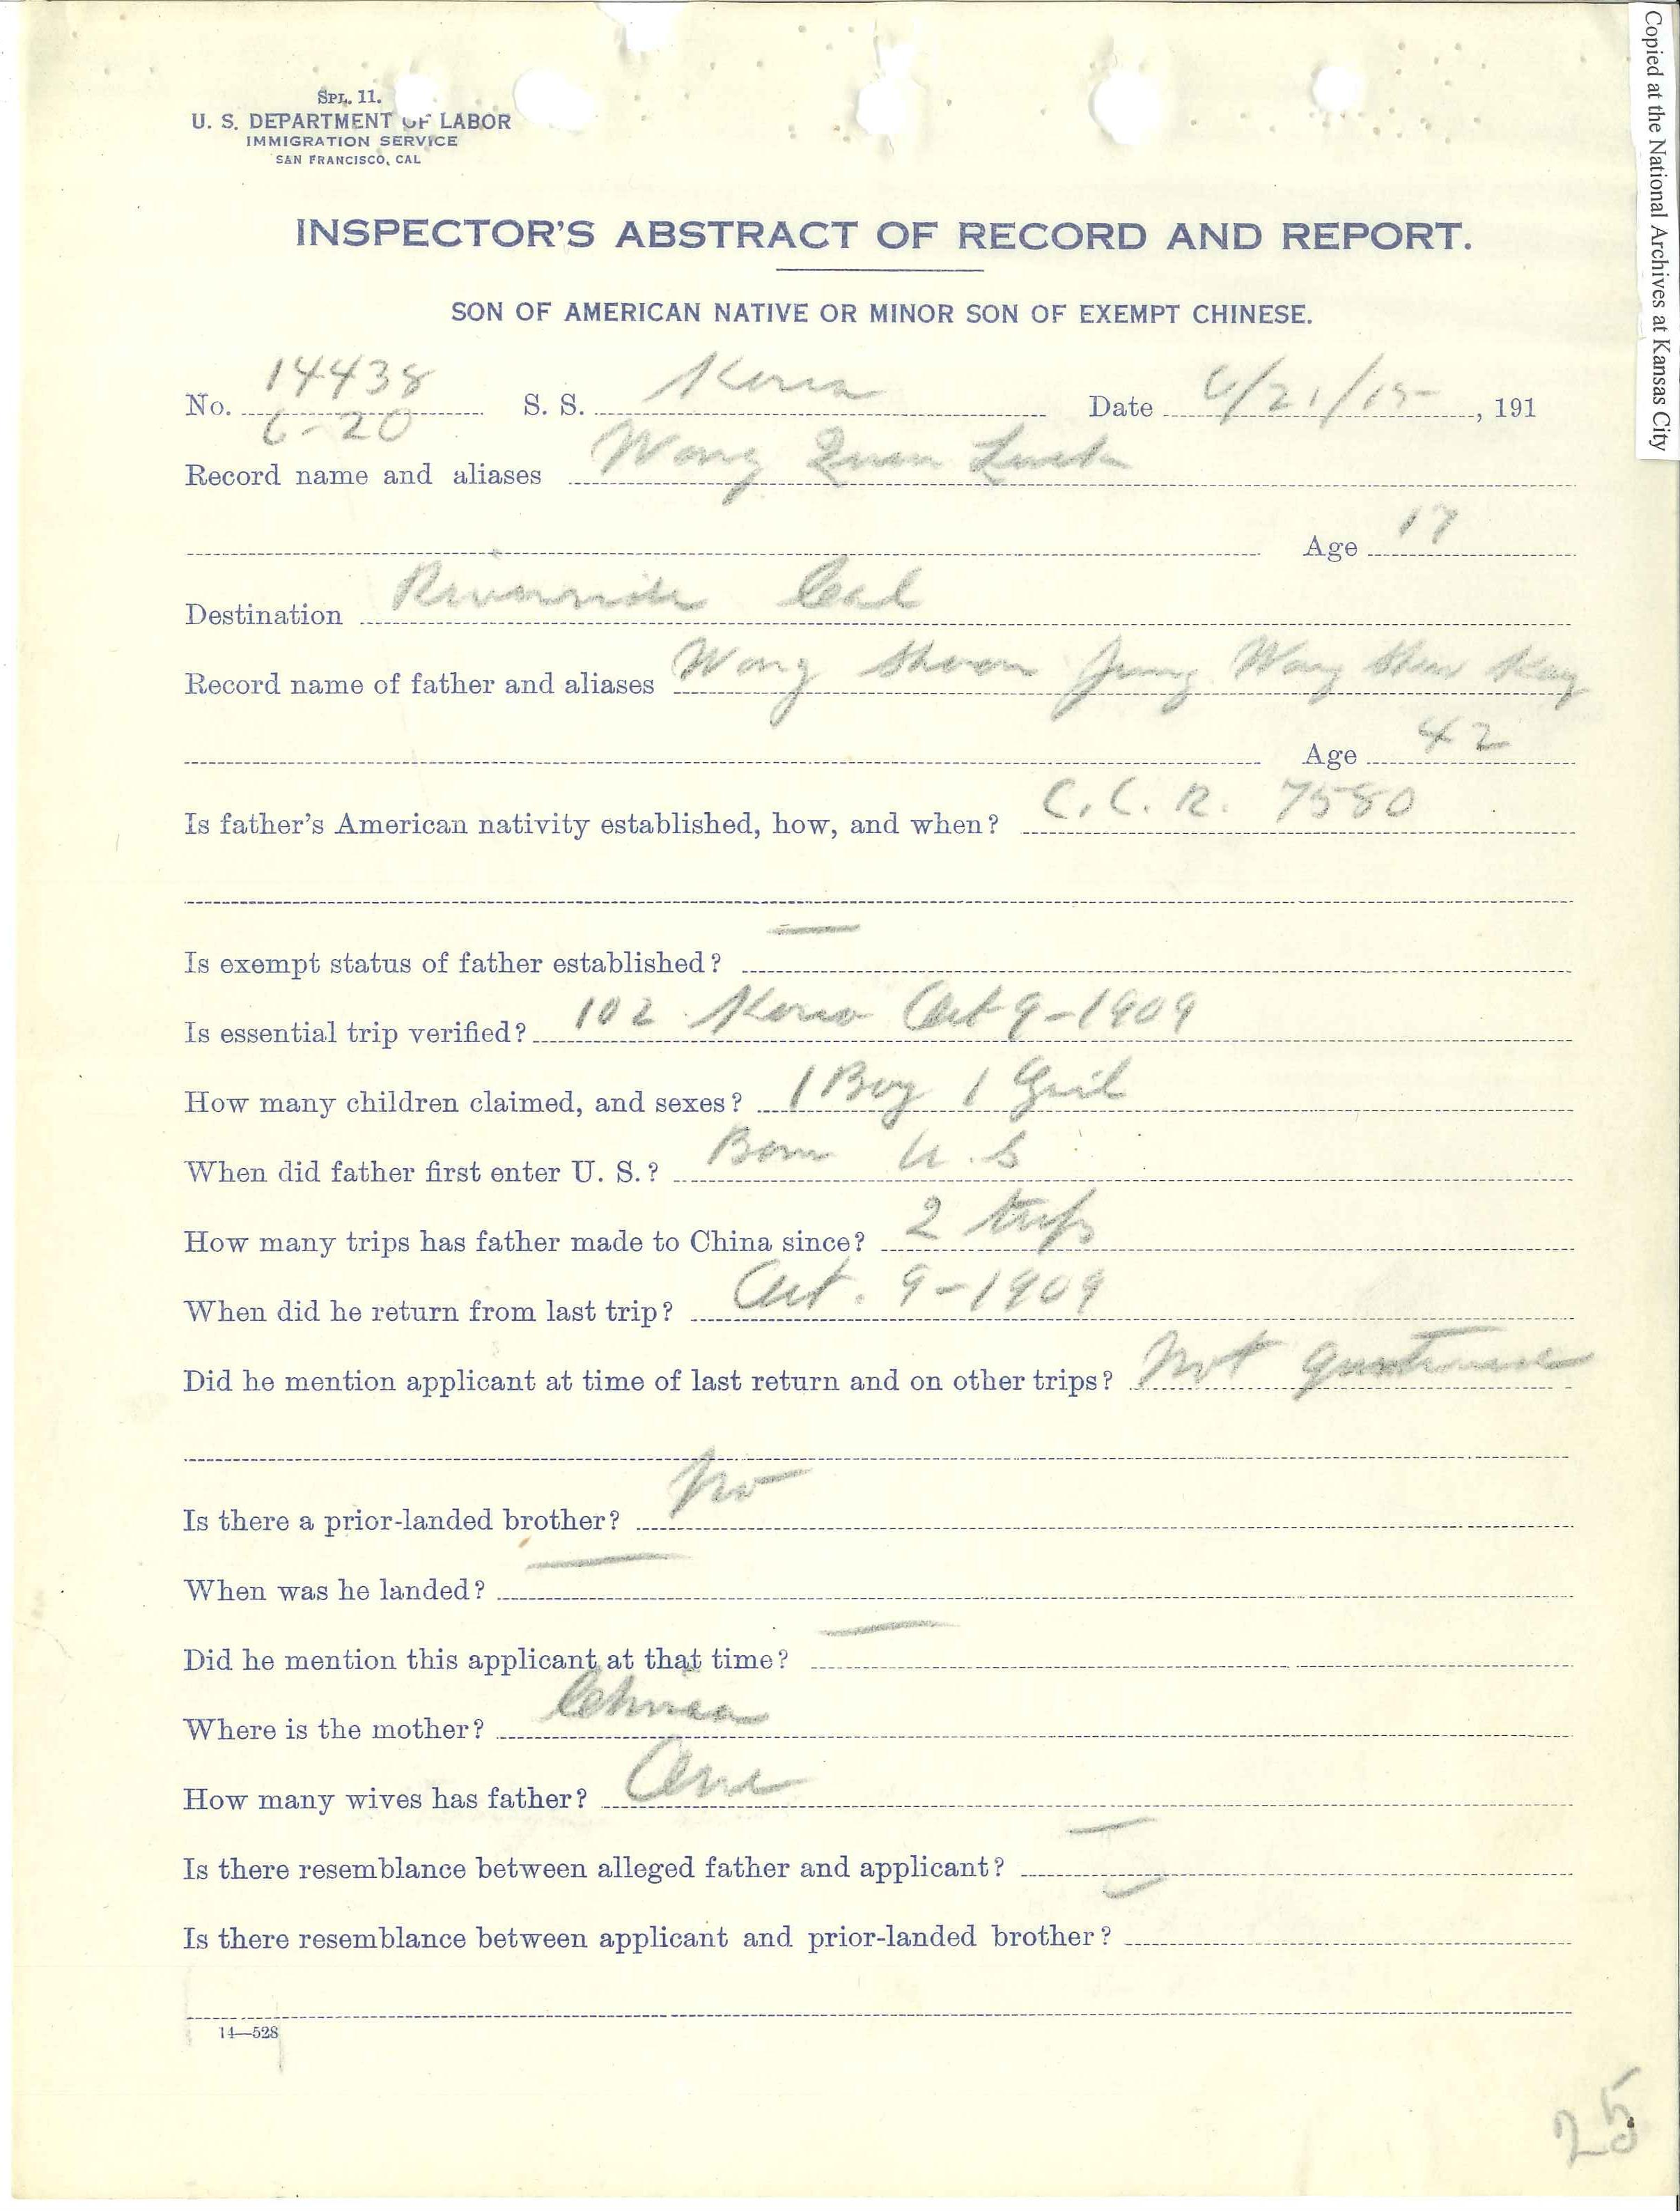 Copied at the National Archives at Kansas City
SPL. 11.
U. S. DEPARTMENT OF LABOR
IMMIGRATION SERVICE
SAN FRANCISCO, CAL
INSPECTOR'S ABSTRACT OF RECORD AND REPORT.
SON OF AMERICAN NATIVE OR MINOR SON OF EXEMPT CHINESE.
No. 14438 S. S. Korea Date 6/21/15, 191
6-20
Record name and aliases Wong Quan Luck
Age 17
Destination Riverside Cal
Record name of father and aliases Wong Shoon Jung Wong Shew Kay
Age 42
Is father's American nativity established, how, and when? C. C. R. 7580
Is exempt status of father established? —
Is essential trip verified? 102 Korea Oct 9-1909
How many children claimed, and sexes? 1 Boy 1 Girl
When did father first enter U. S.? Born U. S
How many trips has father made to China since? 2 trips
When did he return from last trip? Oct. 9-1909
Did he mention applicant at time of last return and on other trips? Not
Is there a prior-landed brother? No
When was he landed? —
Did he mention this applicant at that time? —
Where is the mother? China
How many wives has father? One
Is there resemblance between alleged father and applicant? —
Is there resemblance between applicant and prior-landed brother? —
14—528
25